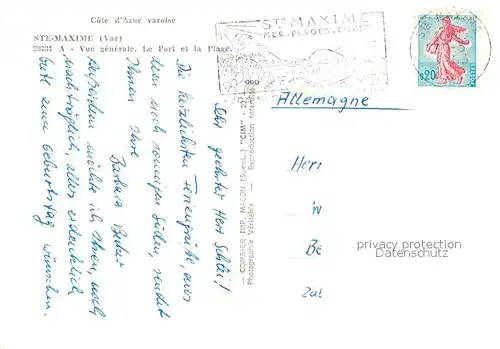 Côte d'Azur varoise
STE-MAXIME (Var)
A - Vue générale. Le Port et la Plage.
STE MAXIME
MER. PLAGES. FORÊT
0,20
POSTES
Allemagne
Sehr geehrter Herr
Die herzlichsten Feriengrüße, aus
dem noch sonnigen Süden, sendet
Ihnen Ihre
Barbara
Außerdem möchte ich Ihnen, noch
nachträglich, alles erdenklich
gute zum Geburtstag wünschen.
COMBIER IMP. MACON (S.-et-L.) "CIM"
Photographie Véritable - Reproduction
Herr
W
Be
privacy protection
Datenschutz